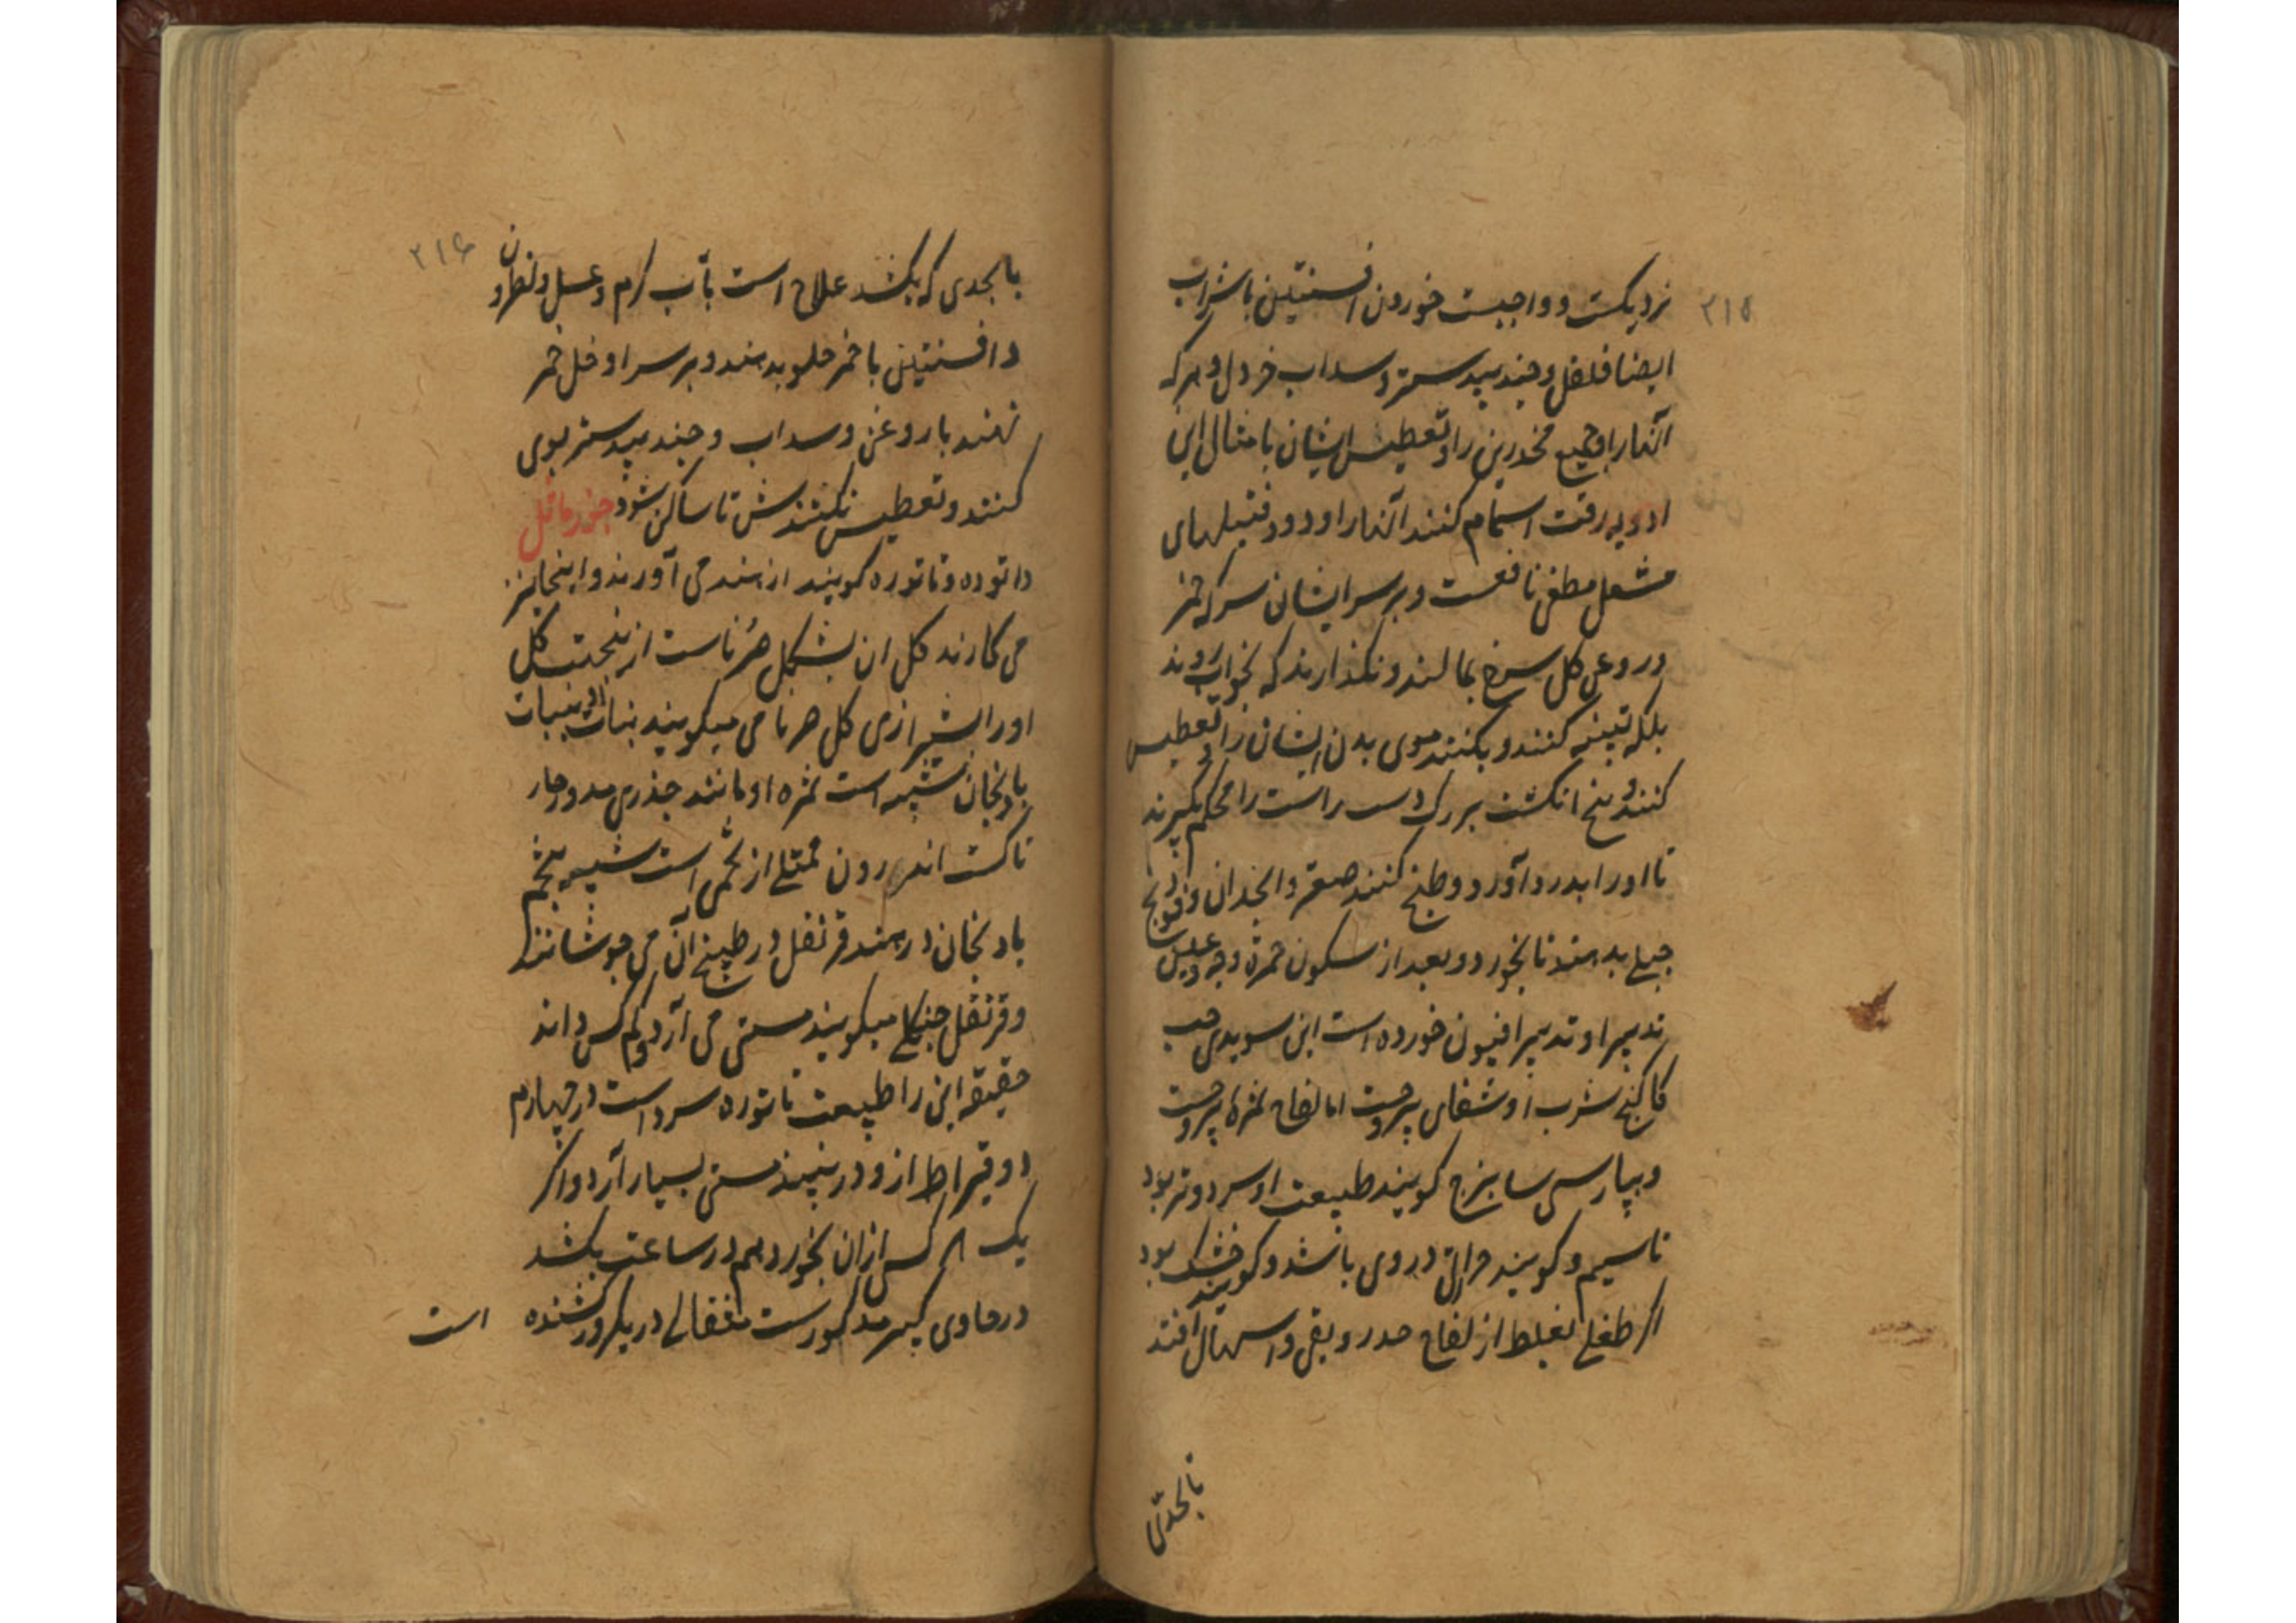 ۲۱۵
نزدیکست و واجبست خوردن افسنتین با شراب
ایضا فلفل و جند بیدستر و سداب خردل و سرکه
آنها را و جمیع مخدرین را و تعطیس ایشان با مثال این
ادویه رقت اسمام کنند آنها را و دود فتیلهای
مشعل مطفی نافعست و بر سر ایشان سرکه خمر
و روغن کل سرخ بمالند و نکذارند که بخواب روند
بلکه تنبیه کنند و بکنند موی بدن ایشان را و تعطیس
کنند و بیخ انکشت بزرک دست راست را محکم بگیرند
تا او را بدرد آورد و طبخ کنند صعتر و انجدان و فودنج
جبلی بدهند تا بخورد و بعد از سکون حمرة وجه و عینین
تدبیر او تدبیر افیون خورده است ابن سویدی حب
کاکنج شرب او شفای یبروحست اما لفاح ثمرهٔ یبروحست
و بپارسی سابیزج کویند طبیعت او سرد و تر بود
تا سیم و کویند حرارتی در وی باشد و کویند خشک بود
اگر طفلی بغلط از لفاح خورد و بقی و اسهال افتند
بالحدی
۲۱۶
بالحدی که بکشد علاج است بآب گرم و عسل و نطرون
و افسنتین با خمر حلو بدهند و بر سر او خل خمر
نهند با روغن و سداب و جند بیدستر بوی
کنند و تعطیس بکنندش تا ساکن شود جوز ماثل
داتوده و تاتوره کویند از هند می آورند و اینجا نیز
می کارند کل ان بشکل سرناست از ینجهت کل
او را شیرازی کل سرنامی میکویند نبات او بنبات
بادنجان شبیه است ثمره او مانند جذری مدور خار
ناکست اندرون ممتلی از تخمی است شبیه بتخم
بادنجان در هند قرنفل در طبیخ آن می جوشانند
و قرنفل جنکلی میکویند مستی می آرد و کم کس داند
حقیقه این را طبیعت تاتوره سرد است در چهارم
دو قیراط ازو در نبیذ مستی بسیار آرد و اکر
یک اگر کس ازان بخورد هم در ساعت بکشد
در حاوی کبیر مذکورست مثقالی در یکروز کشنده است